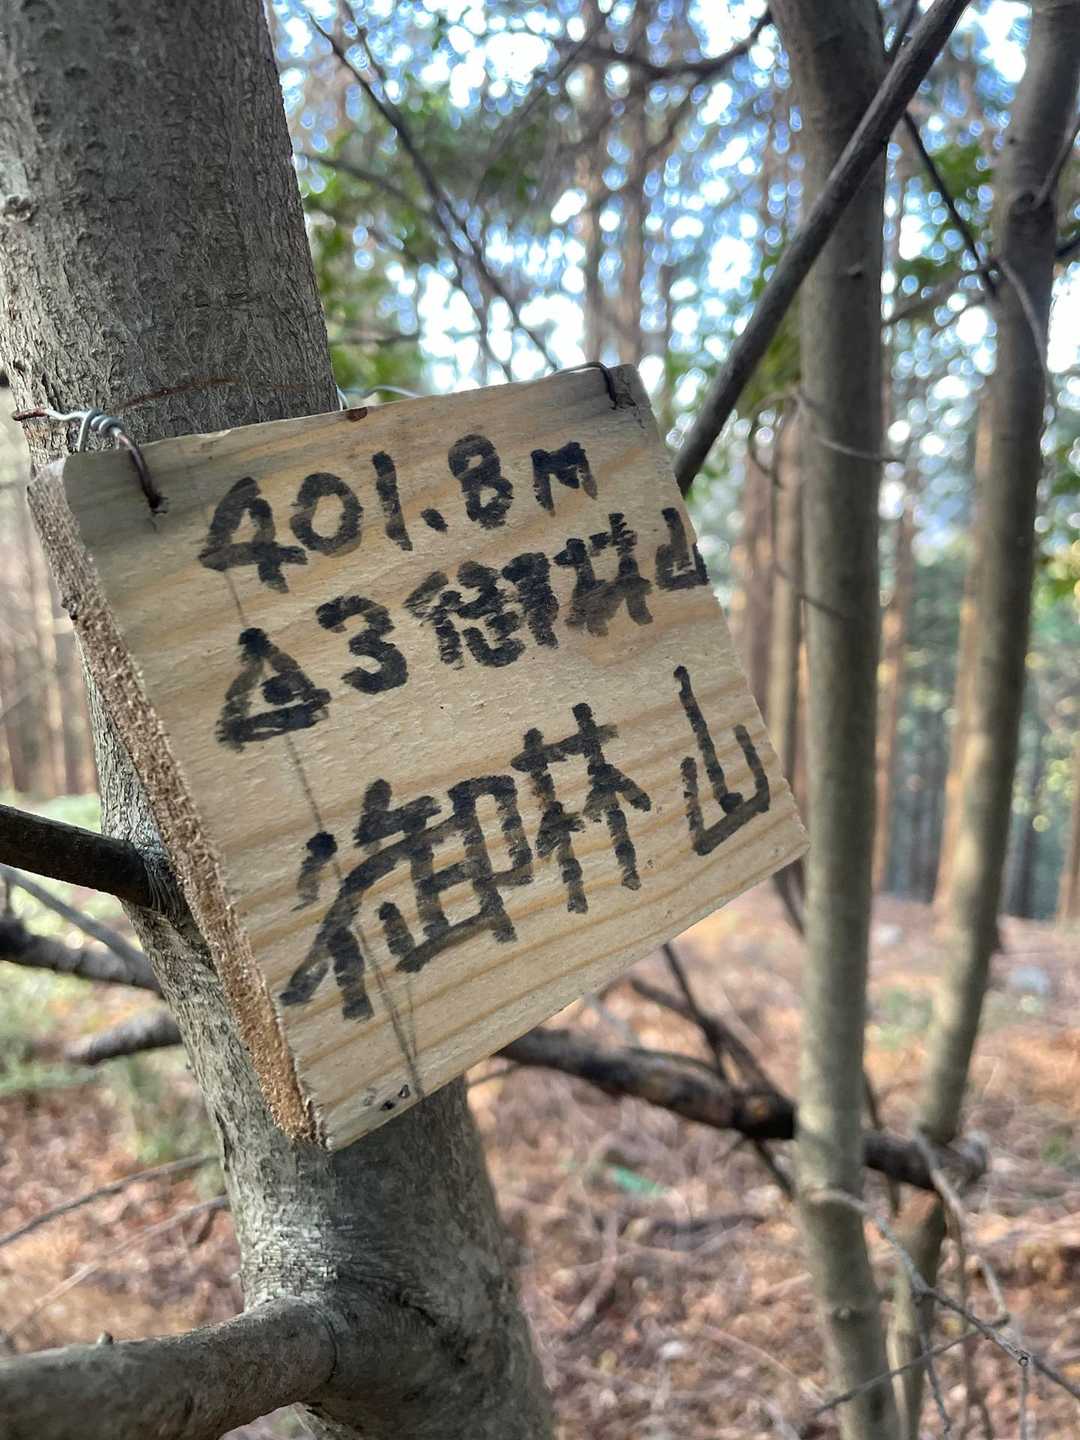 401.8m
△3御林山
御林山